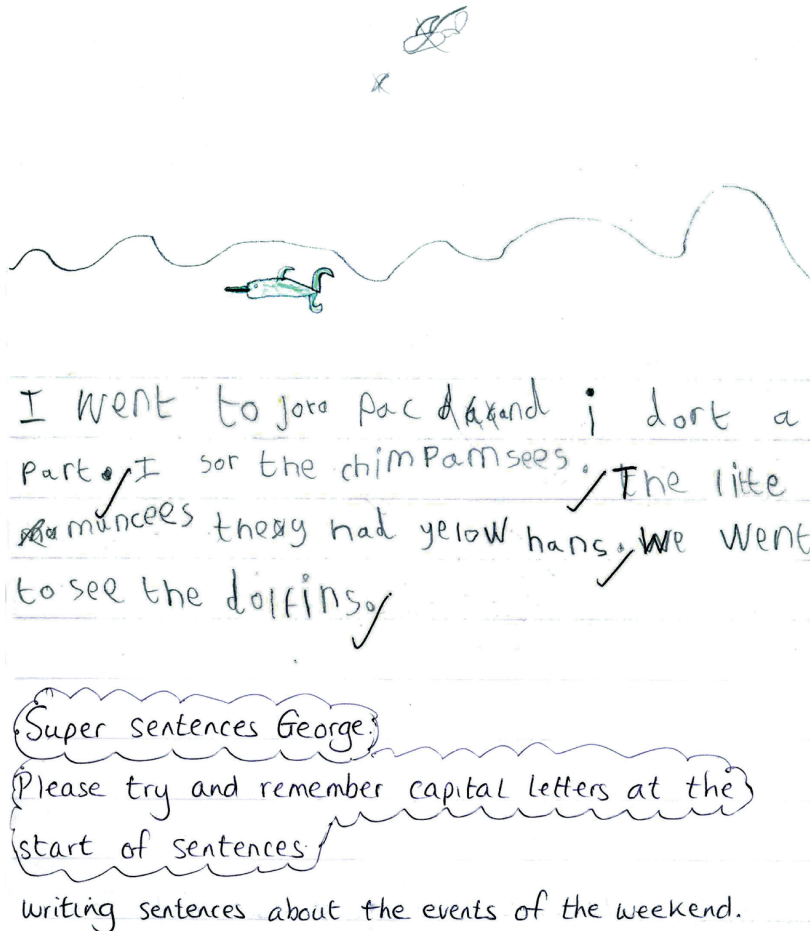 I went to joro pac and i dort a
part. I sor the chimpamsees. The litte
muncees they had yelow hans. We went
to see the dolfins.
Super sentences George.
Please try and remember capital letters at the
start of sentences.
writing sentences about the events of the weekend.